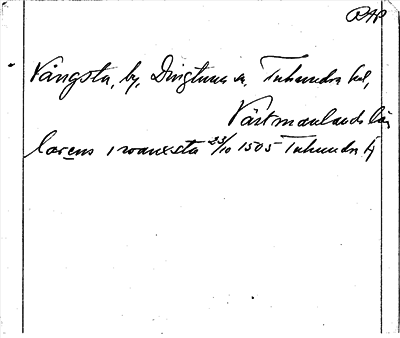 RAP
Vångsta, by, Dingtuna sn, Tuhundra hd,
Västmanlands län
larens i wanxsta 23/10 1505 Tuhundra